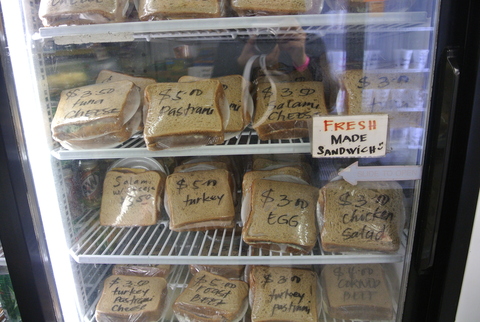 $3.50
tuna
Cheese
$5.00
Pastrami
$3.00
Salami
Cheese
$3.00
FRESH
MADE
SANDWICHS
Salami
$5
$5.00
turkey
$3.00
EGG
$3.00
chicken
Salad
$3.00
turkey
Pastrami
Cheese
$5.00
ROAST
BEEF
$3.00
turkey
Pastrami
$4.00
CORNED
BEEF